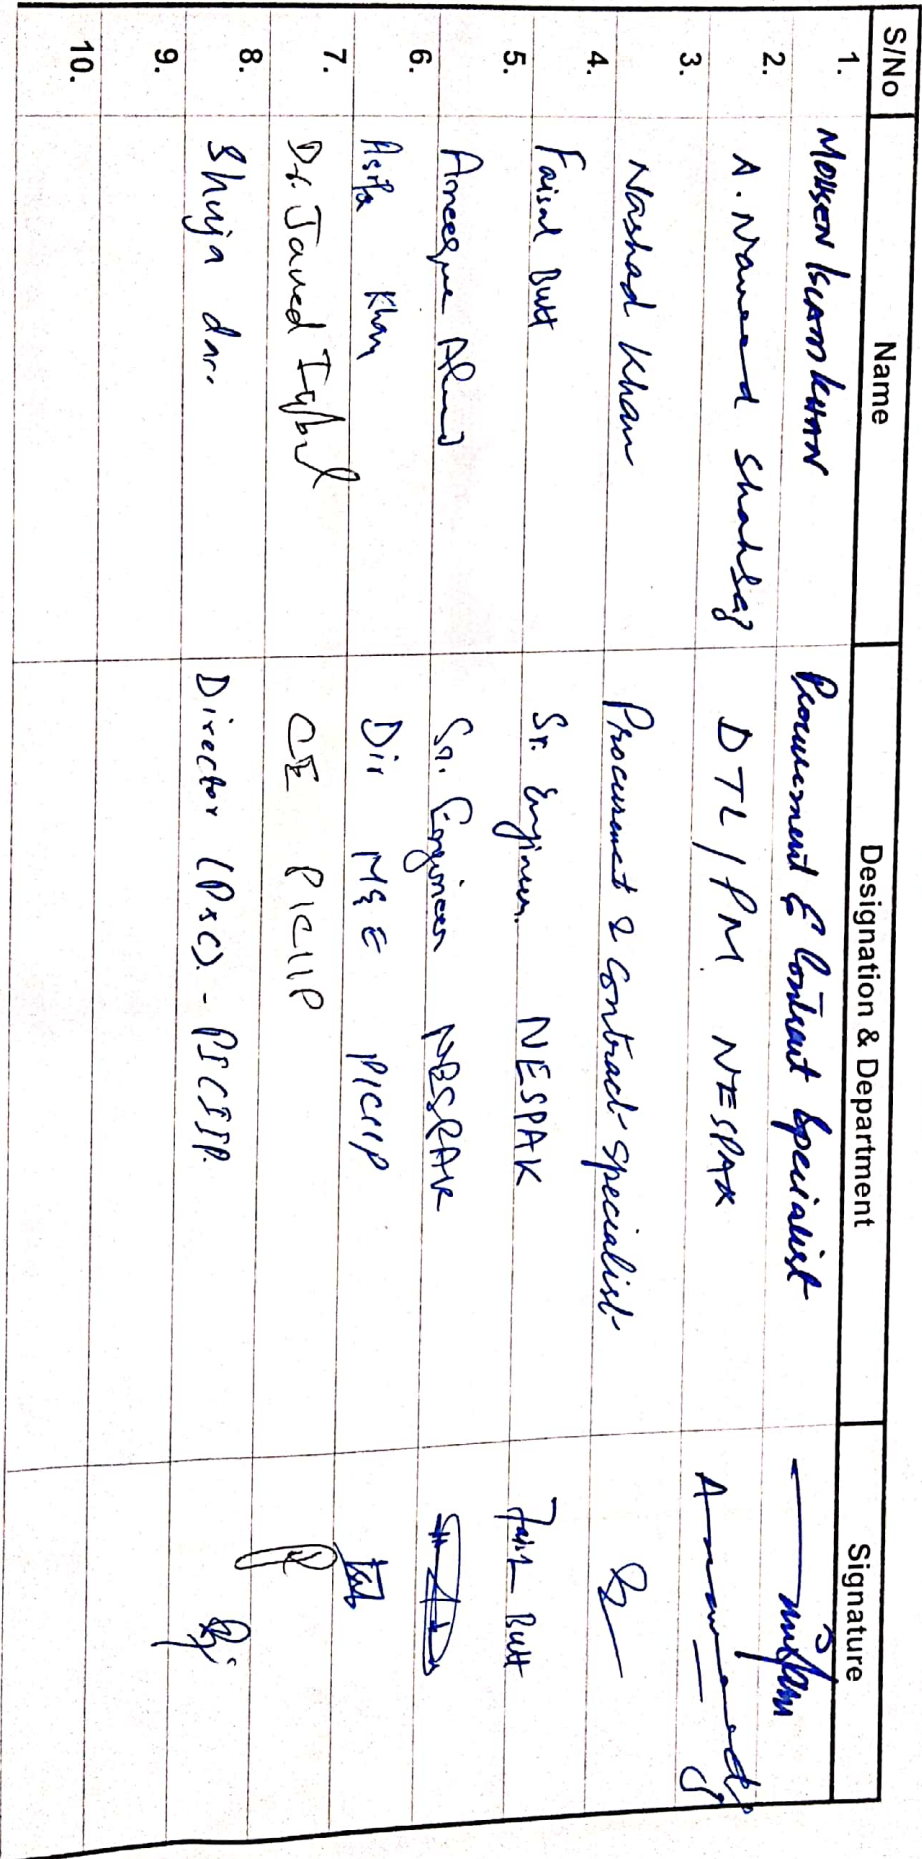 S/No Name Designation & Department Signature
1. MOHSEN ISLAM KHAN Procurement & Contract Specialist
2. A. Nawaad Shahsaq DTL/PM NESPAK
3. Nashad Khan Procurement & Contract Specialist
4. Faisal Butt Sr. Engineer. NESPAK Faisal Butt
5. Ameeque Ahmad Sr. Engineer NESPAK
6. Asifa Khan Dir M&E PICIIP
7. Dr. Javed Iqbal CE PICIIP
8. Shuja dar. Director (P&C). - PICIIP.
9.
10.